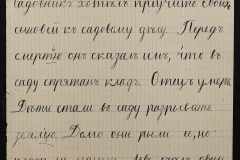 садовникъ хотѣлъ пріучить свои
сыновей къ садовому дѣлу. Передъ
смертію онъ сказалъ имъ, что въ
саду спрятанъ кладъ. Отецъ умеръ.
Дѣти стали въ саду разрывать
землю. Долго они рыли и, не